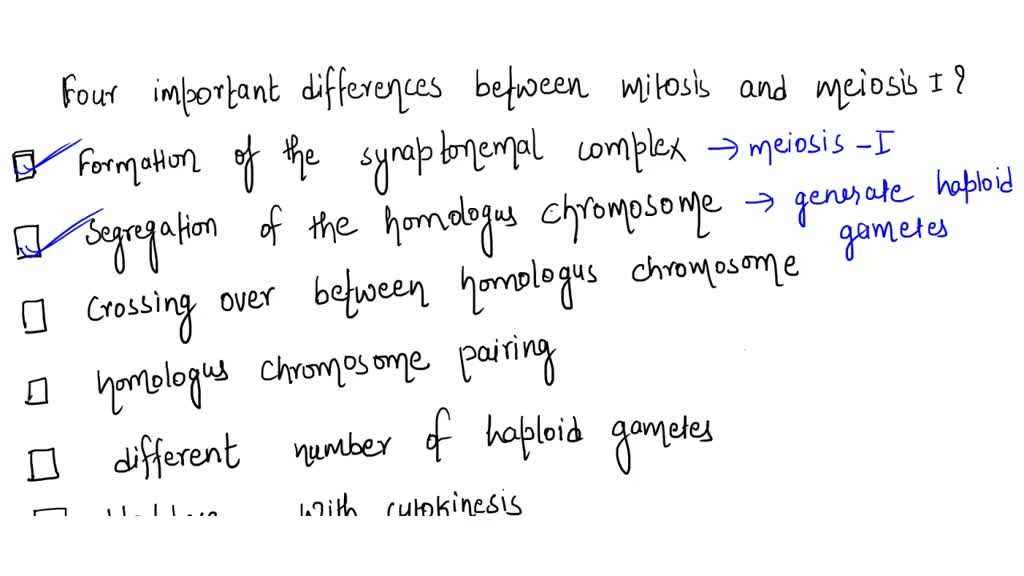 Four important differences between mitosis and meiosis I?
Formation of the synaptonemal complex → meiosis -I
Segregation of the homologus chromosome → generate haploid
gametes
Crossing over between homologus chromosome
homologus chromosome pairing
different number of haploid gametes
with cytokinesis